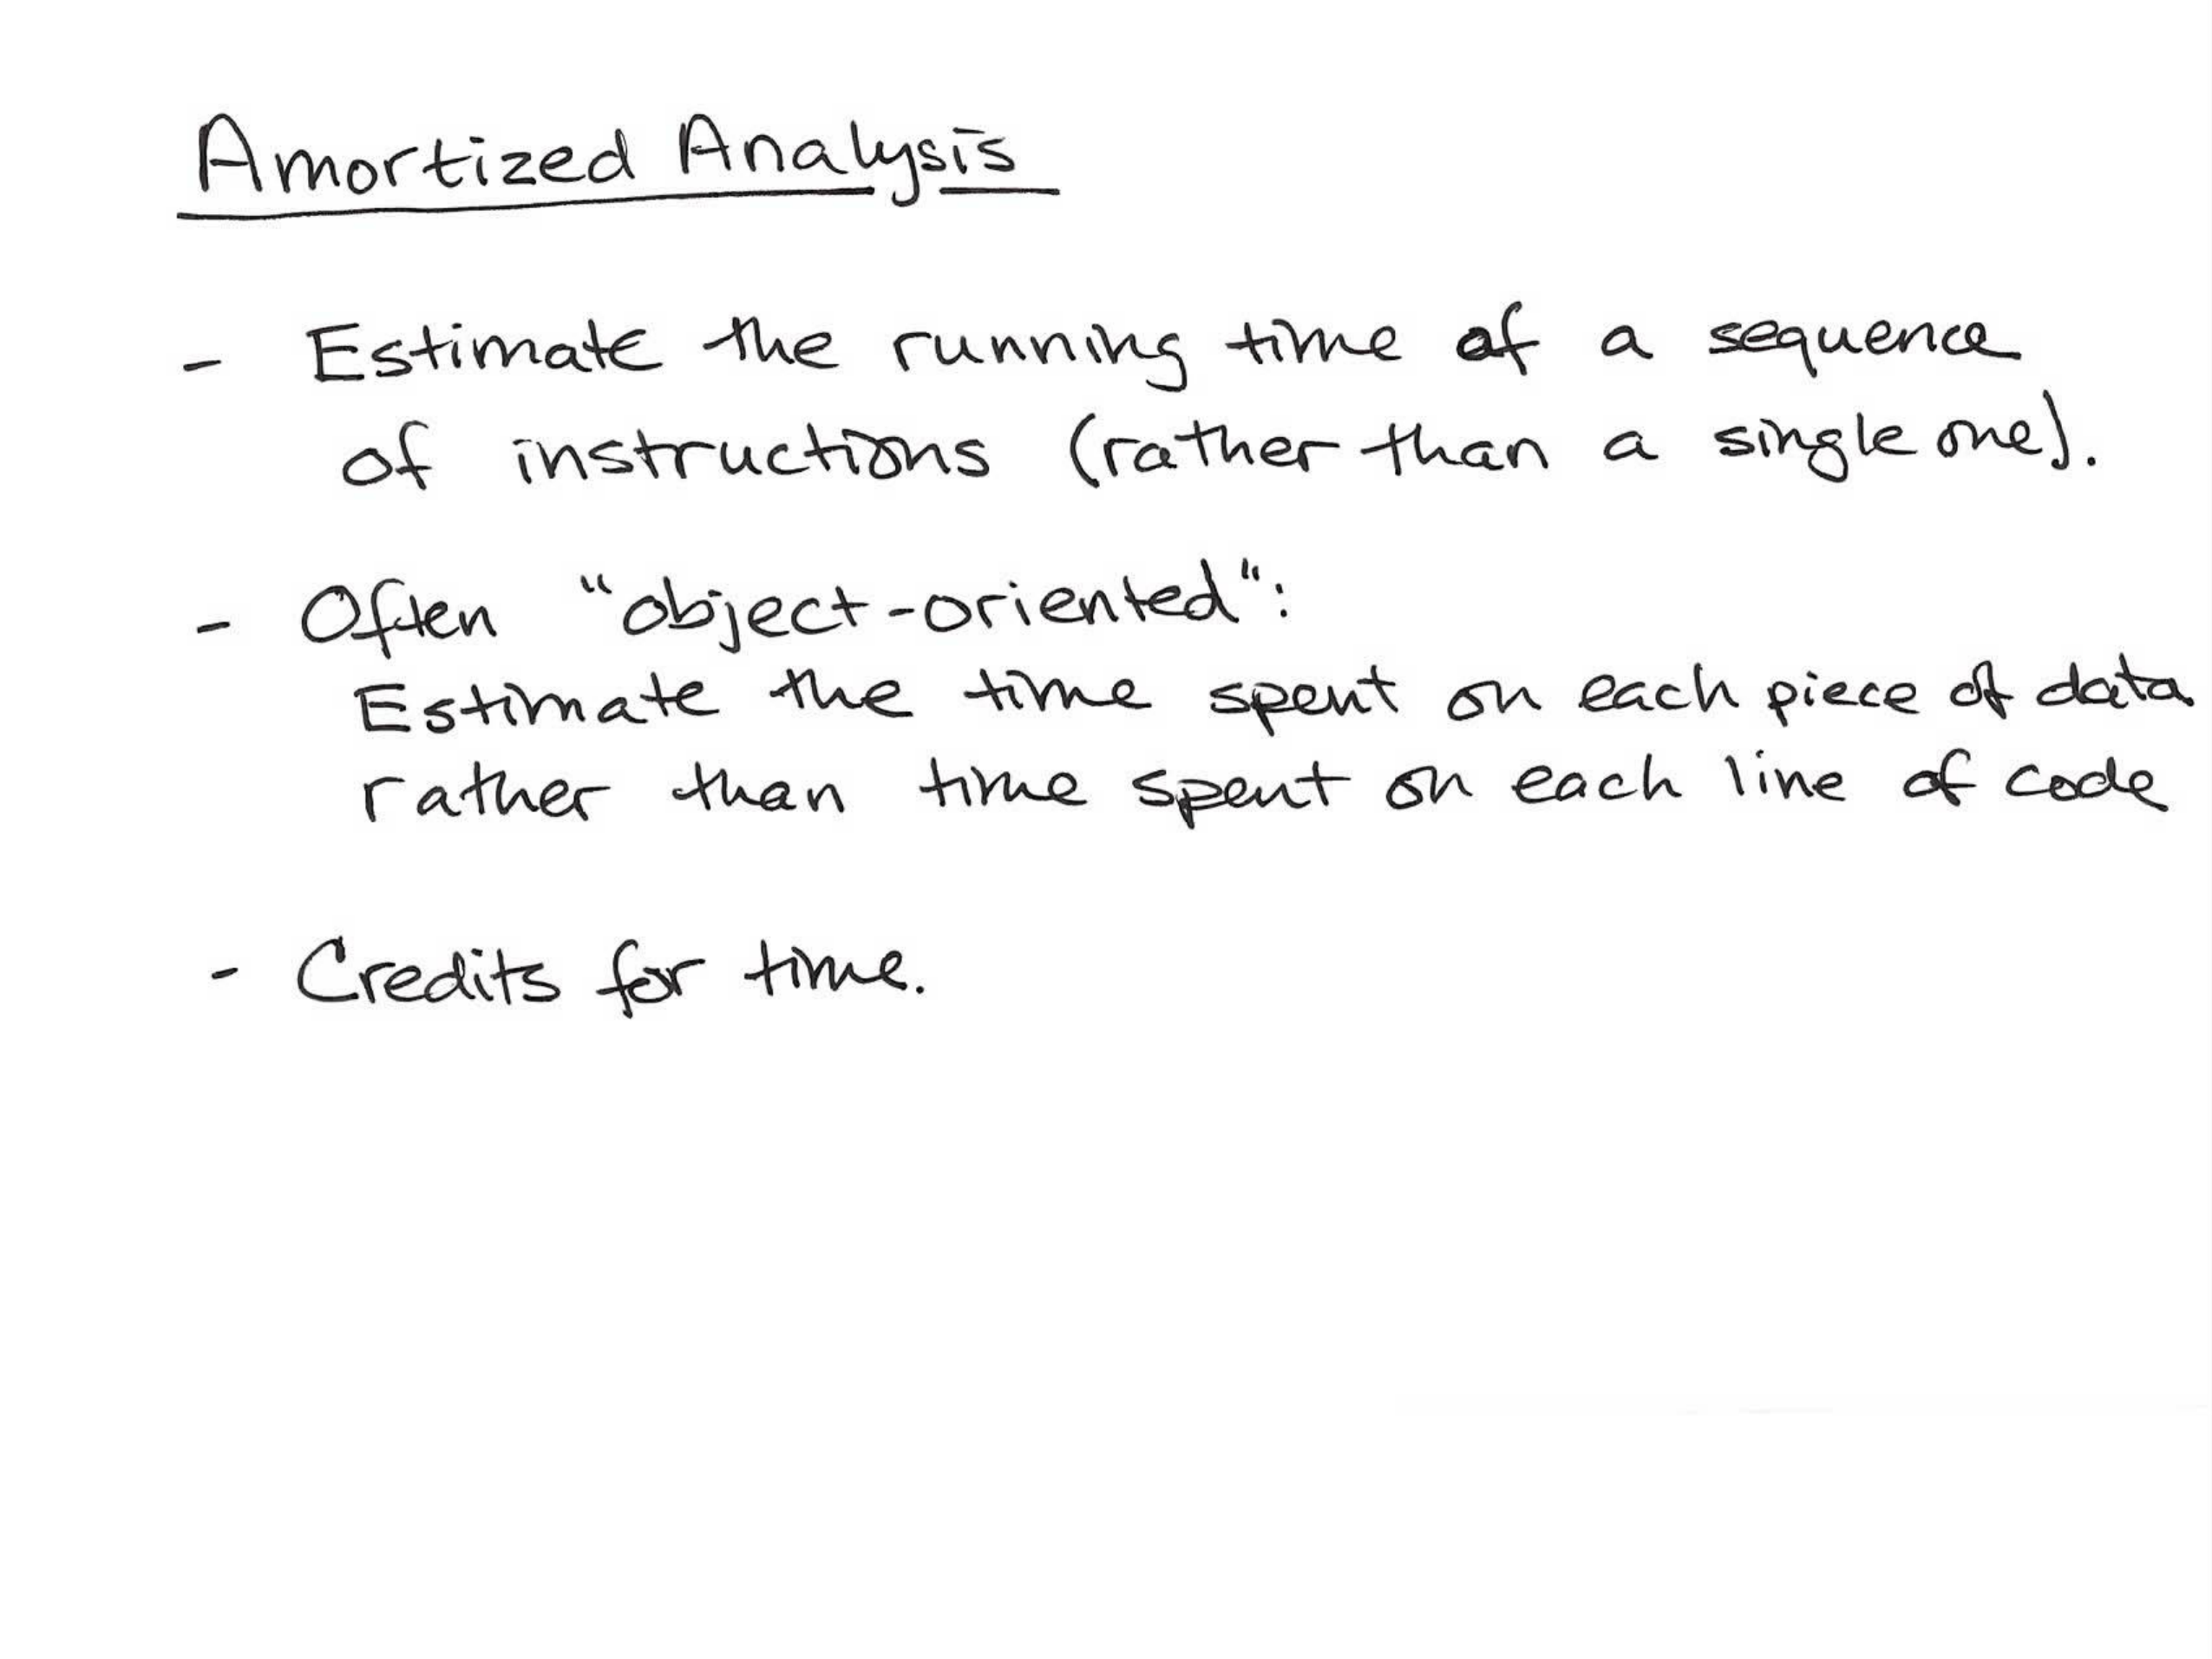 Amortized Analysis
- Estimate the running time of a sequence
of instructions (rather than a single one).
- Often "object-oriented":
Estimate the time spent on each piece of data
rather than time spent on each line of code
- Credits for time.